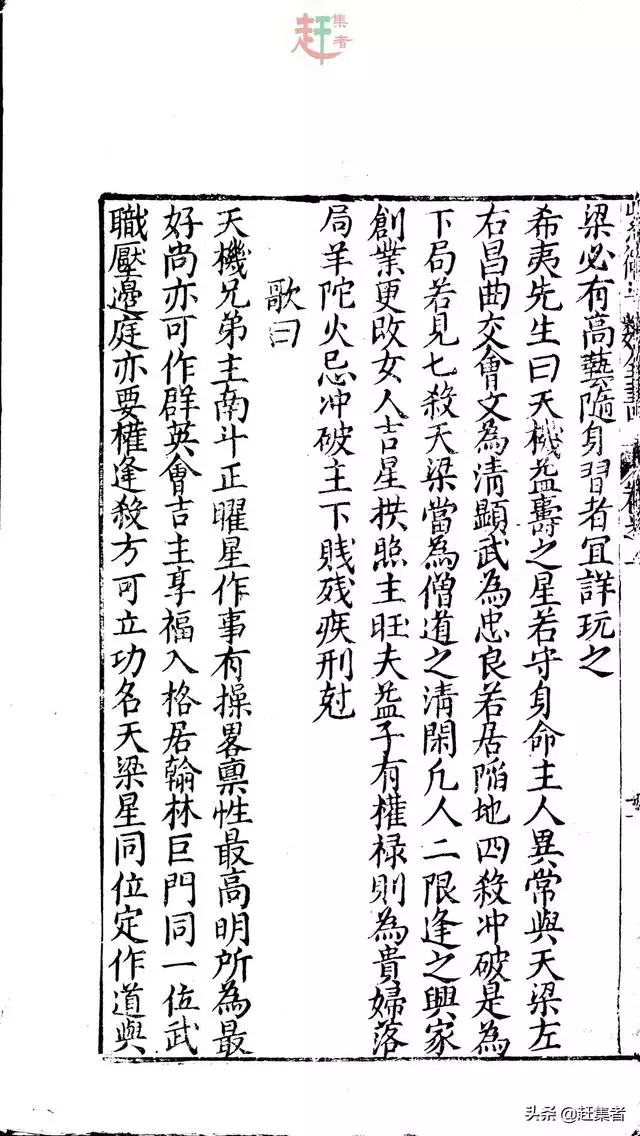 赶集者
梁必有高藝隨身習者宜詳玩之
希夷先生曰天機益壽之星若守身命主人異常與天梁左
右昌曲交會文為清顯武為忠良若居陷地四殺冲破是為
下局若見七殺天梁當為僧道之清閑凡人二限逢之興家
創業更改女人吉星拱照主旺夫益子有權禄則為貴婦落
局羊陀火忌冲破主下賎残疾刑尅
歌曰
天機兄弟主南斗正曜星作事有操畧禀性最高明所為最
好尚亦可作群英會吉主享福入格居翰林巨門同一位武
職壓邉庭亦要權逢殺方可立功名天梁星同位定作道與
头条 @赶集者